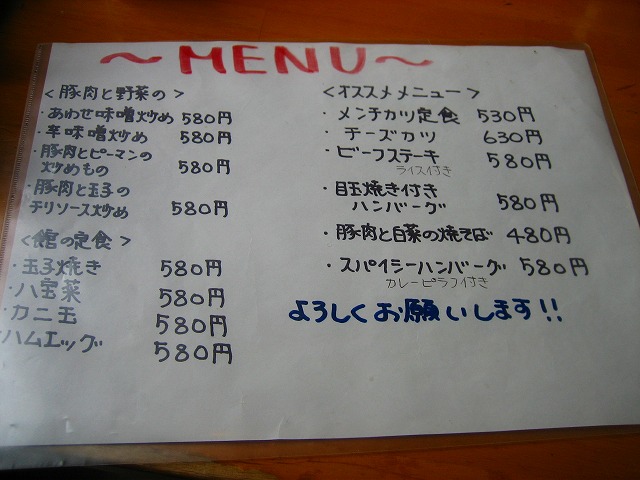 ～MENU～
＜豚肉と野菜の＞
・あわせ味噌炒め 580円
・辛味噌炒め 580円
・豚肉とピーマンの
炒めもの 580円
・豚肉と玉子の
チリソース炒め 580円
＜館の定食＞
・玉子焼き 580円
・八宝菜 580円
・カニ玉 580円
・ハムエッグ 580円
＜オススメメニュー＞
・メンチカツ定食 530円
・チーズカツ 630円
・ビーフステーキ 580円
ライス付き
・目玉焼き付き
ハンバーグ 580円
・豚肉と白菜の焼そば 480円
・スパイシーハンバーグ 580円
カレーピラフ付き
よろしくお願いします!!